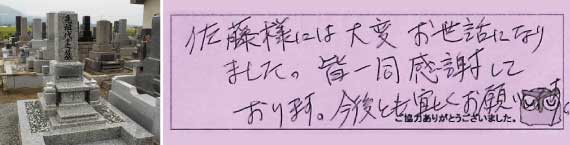 佐藤様には大変お世話になり
ました。皆一同感謝して
おります。今後とも宜しくお願い
ご協力ありがとうございました。